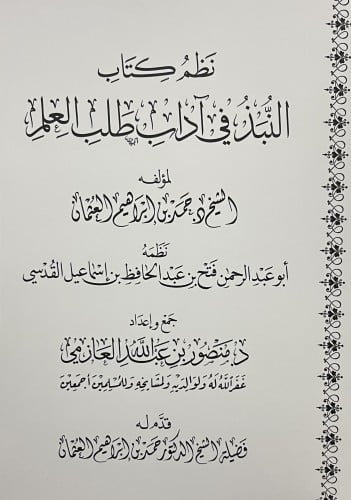 نَظْمُ كِتَابِ
النُّبَذُ فِي آدَابِ طَلَبِ العِلْمِ
لمؤلفه
الشيخ د. حمد بن إبراهيم العثمان
نَظَمَهُ
أبو عبد الرحمن فتح بن عبد الحافظ بن إسماعيل القدسي
جمع وإعداد
د. منصور بن عبد الله العازمي
غفر الله له ولوالديه ولمشايخه وللمسلمين أجمعين
قدم له
فضيلة الشيخ الدكتور حمد بن إبراهيم العثمان